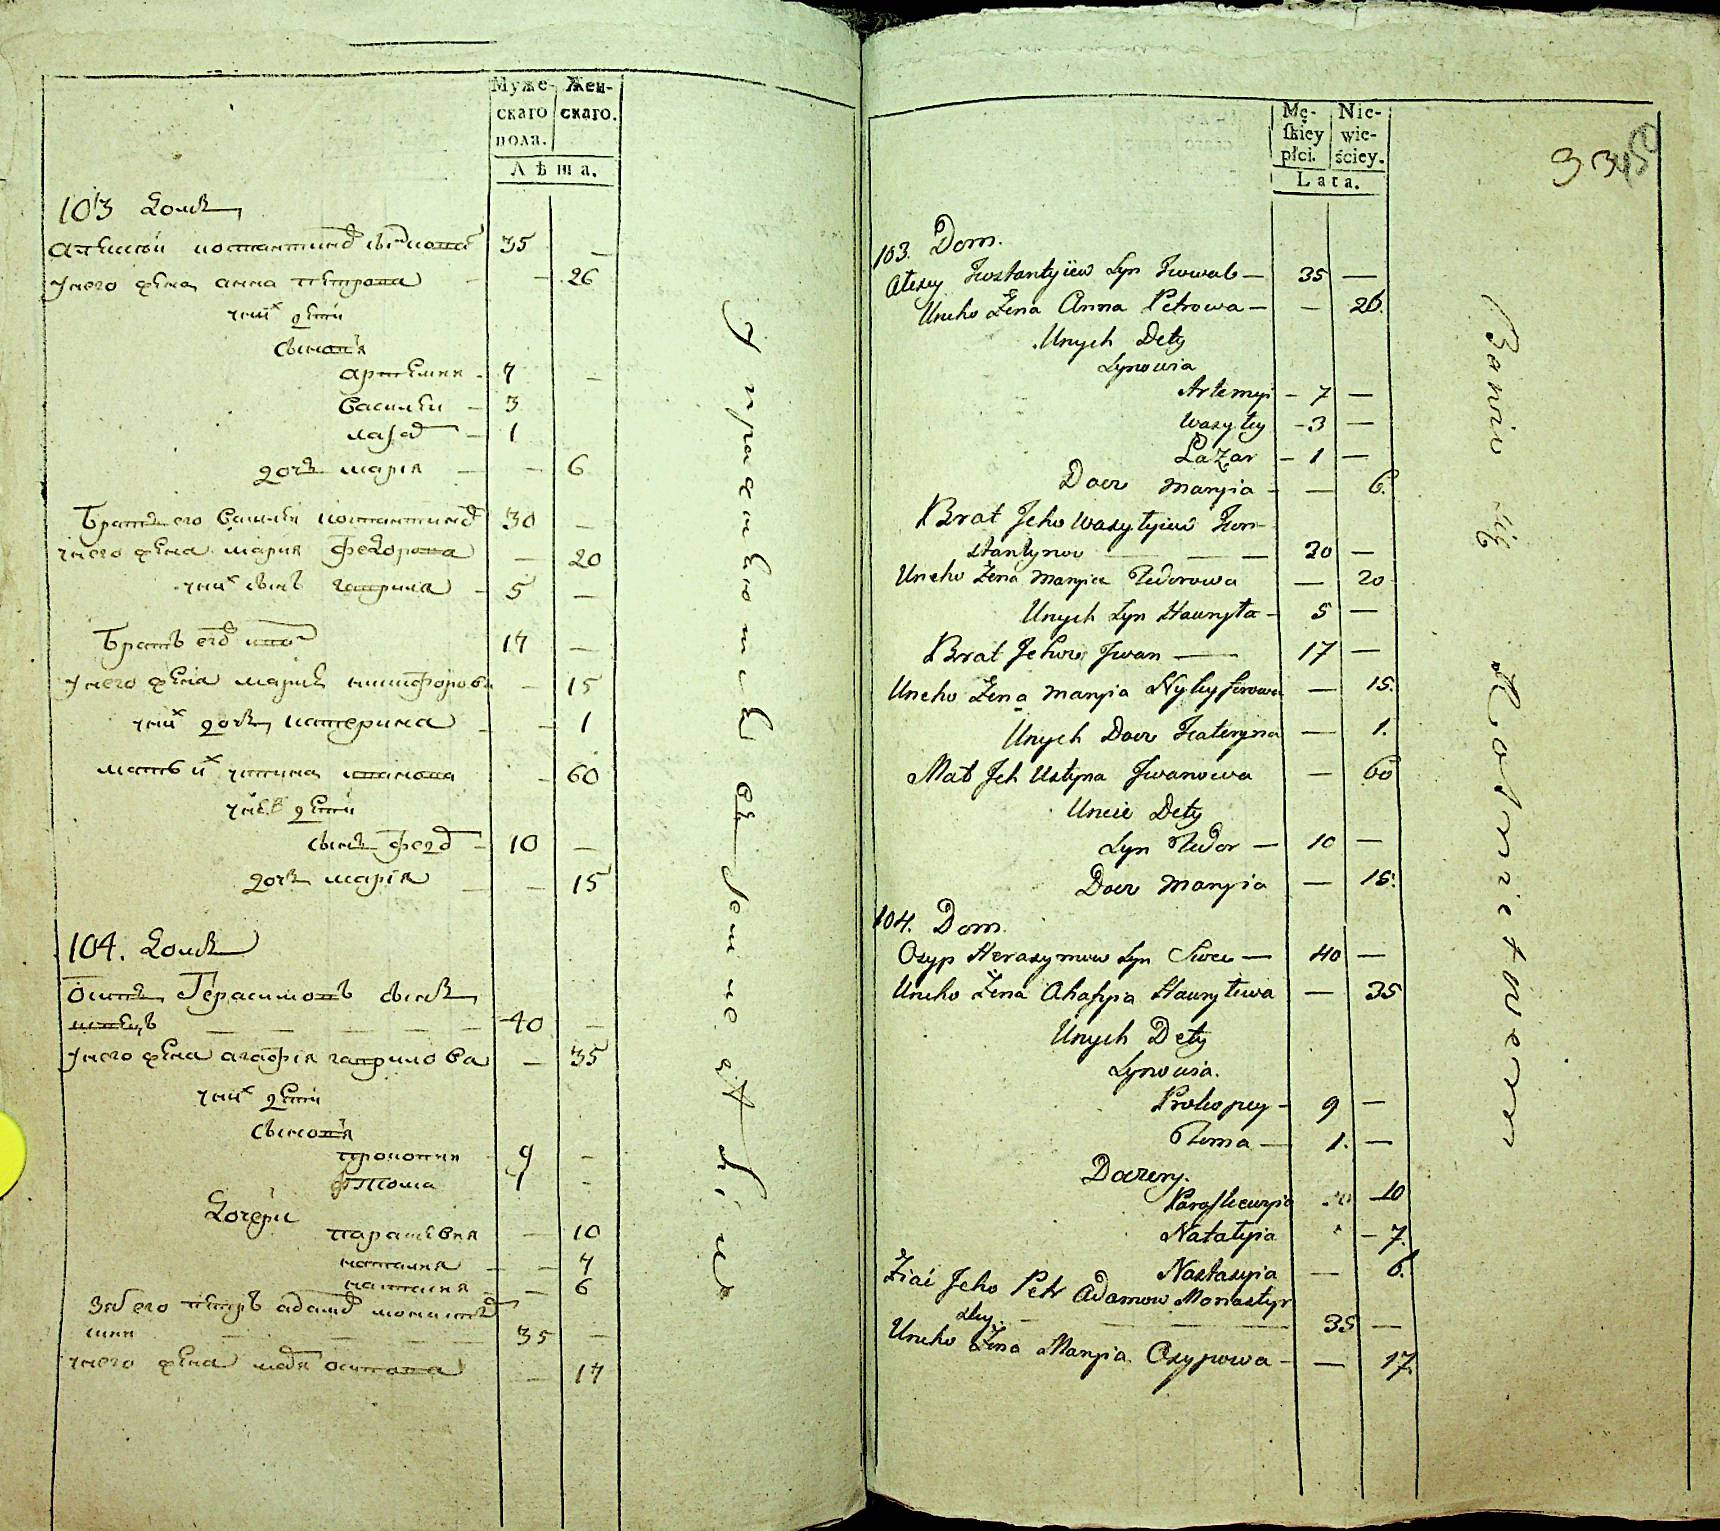 Муже-
скаго
пола.
Жен-
скаго.
Лѣта.
103 Домъ
Алексѣй Костантиновъ сынъ Ковал 35 —
у него жена анна петрова — 26
у них дети
сыновя
артемии 7 —
василеи — 3
лазар — 1
дочъ мария — — 6
Братъ его василеи костантинов 30 —
у него жена мария федорова — 20
у них сынъ гаврила — 5 —
Братъ его иван 17 —
у него жена мария никифорова — 15
у них дочъ катерина — 1
мать их устина иванова — 60
у нее дети
сынъ федор — 10 —
дочъ мария — — 15
104. Домъ
Осипъ Герасимовъ сынъ
швецъ — — — — 40 —
у него жена агафия гаврилова — 35
у них дети
сыновя
прокопии 9 —
фтома 1 -
Дочери
параскевия — 10
наталия — — 7
настасия — 6
Зят его петръ адамов монастыр
скии — — — 35 —
у него жена мария осипова — 17
Упражняются въ домоводствѣ
Mę-
skiey
płci.
Nie-
wie-
ściey.
Lata.
103. Dom.
Alexy Kostantyiew Syn Kowal — 35 —
Uneho Żena Anna Petrowa — — 26.
Unych Dety
Synowia
Artemyi — 7 —
Wasyley — 3 —
Łazar — 1 —
Docz Maryia — — 6.
Brat Jeho Wasylyiew Kon-
stantynow — — — 30 —
Uneho Żena Maryia Fedorowa — 20
Unych Syn Hauryła — 5 —
Brat Jehoż Jwan — 17 —
Uneho Żena Maryia Nykyforowa — 15.
Unych Docz Kateryna — 1.
Mat Jeh Ustyna Jwanowa — 60
Uneie Dety
Syn Fedor — 10 —
Docz Maryia — 15.
104. Dom.
Osyp Herasymow Syn Szwec — 40 —
Uneho Żena Ahafyia Hauryłowa — 35
Unych Dety
Synowia.
Prokopey — 9 —
Foma — 1. —
Doczery.
Paraskewyia 10
Natalyia — 7.
Nastasyia — 6.
Ziać Jeho Petr Adamow Monastyr
sky. — — — 35 —
Uneho Żena Maryia Osypowa — — 17.
Bawią się Rolnictwem